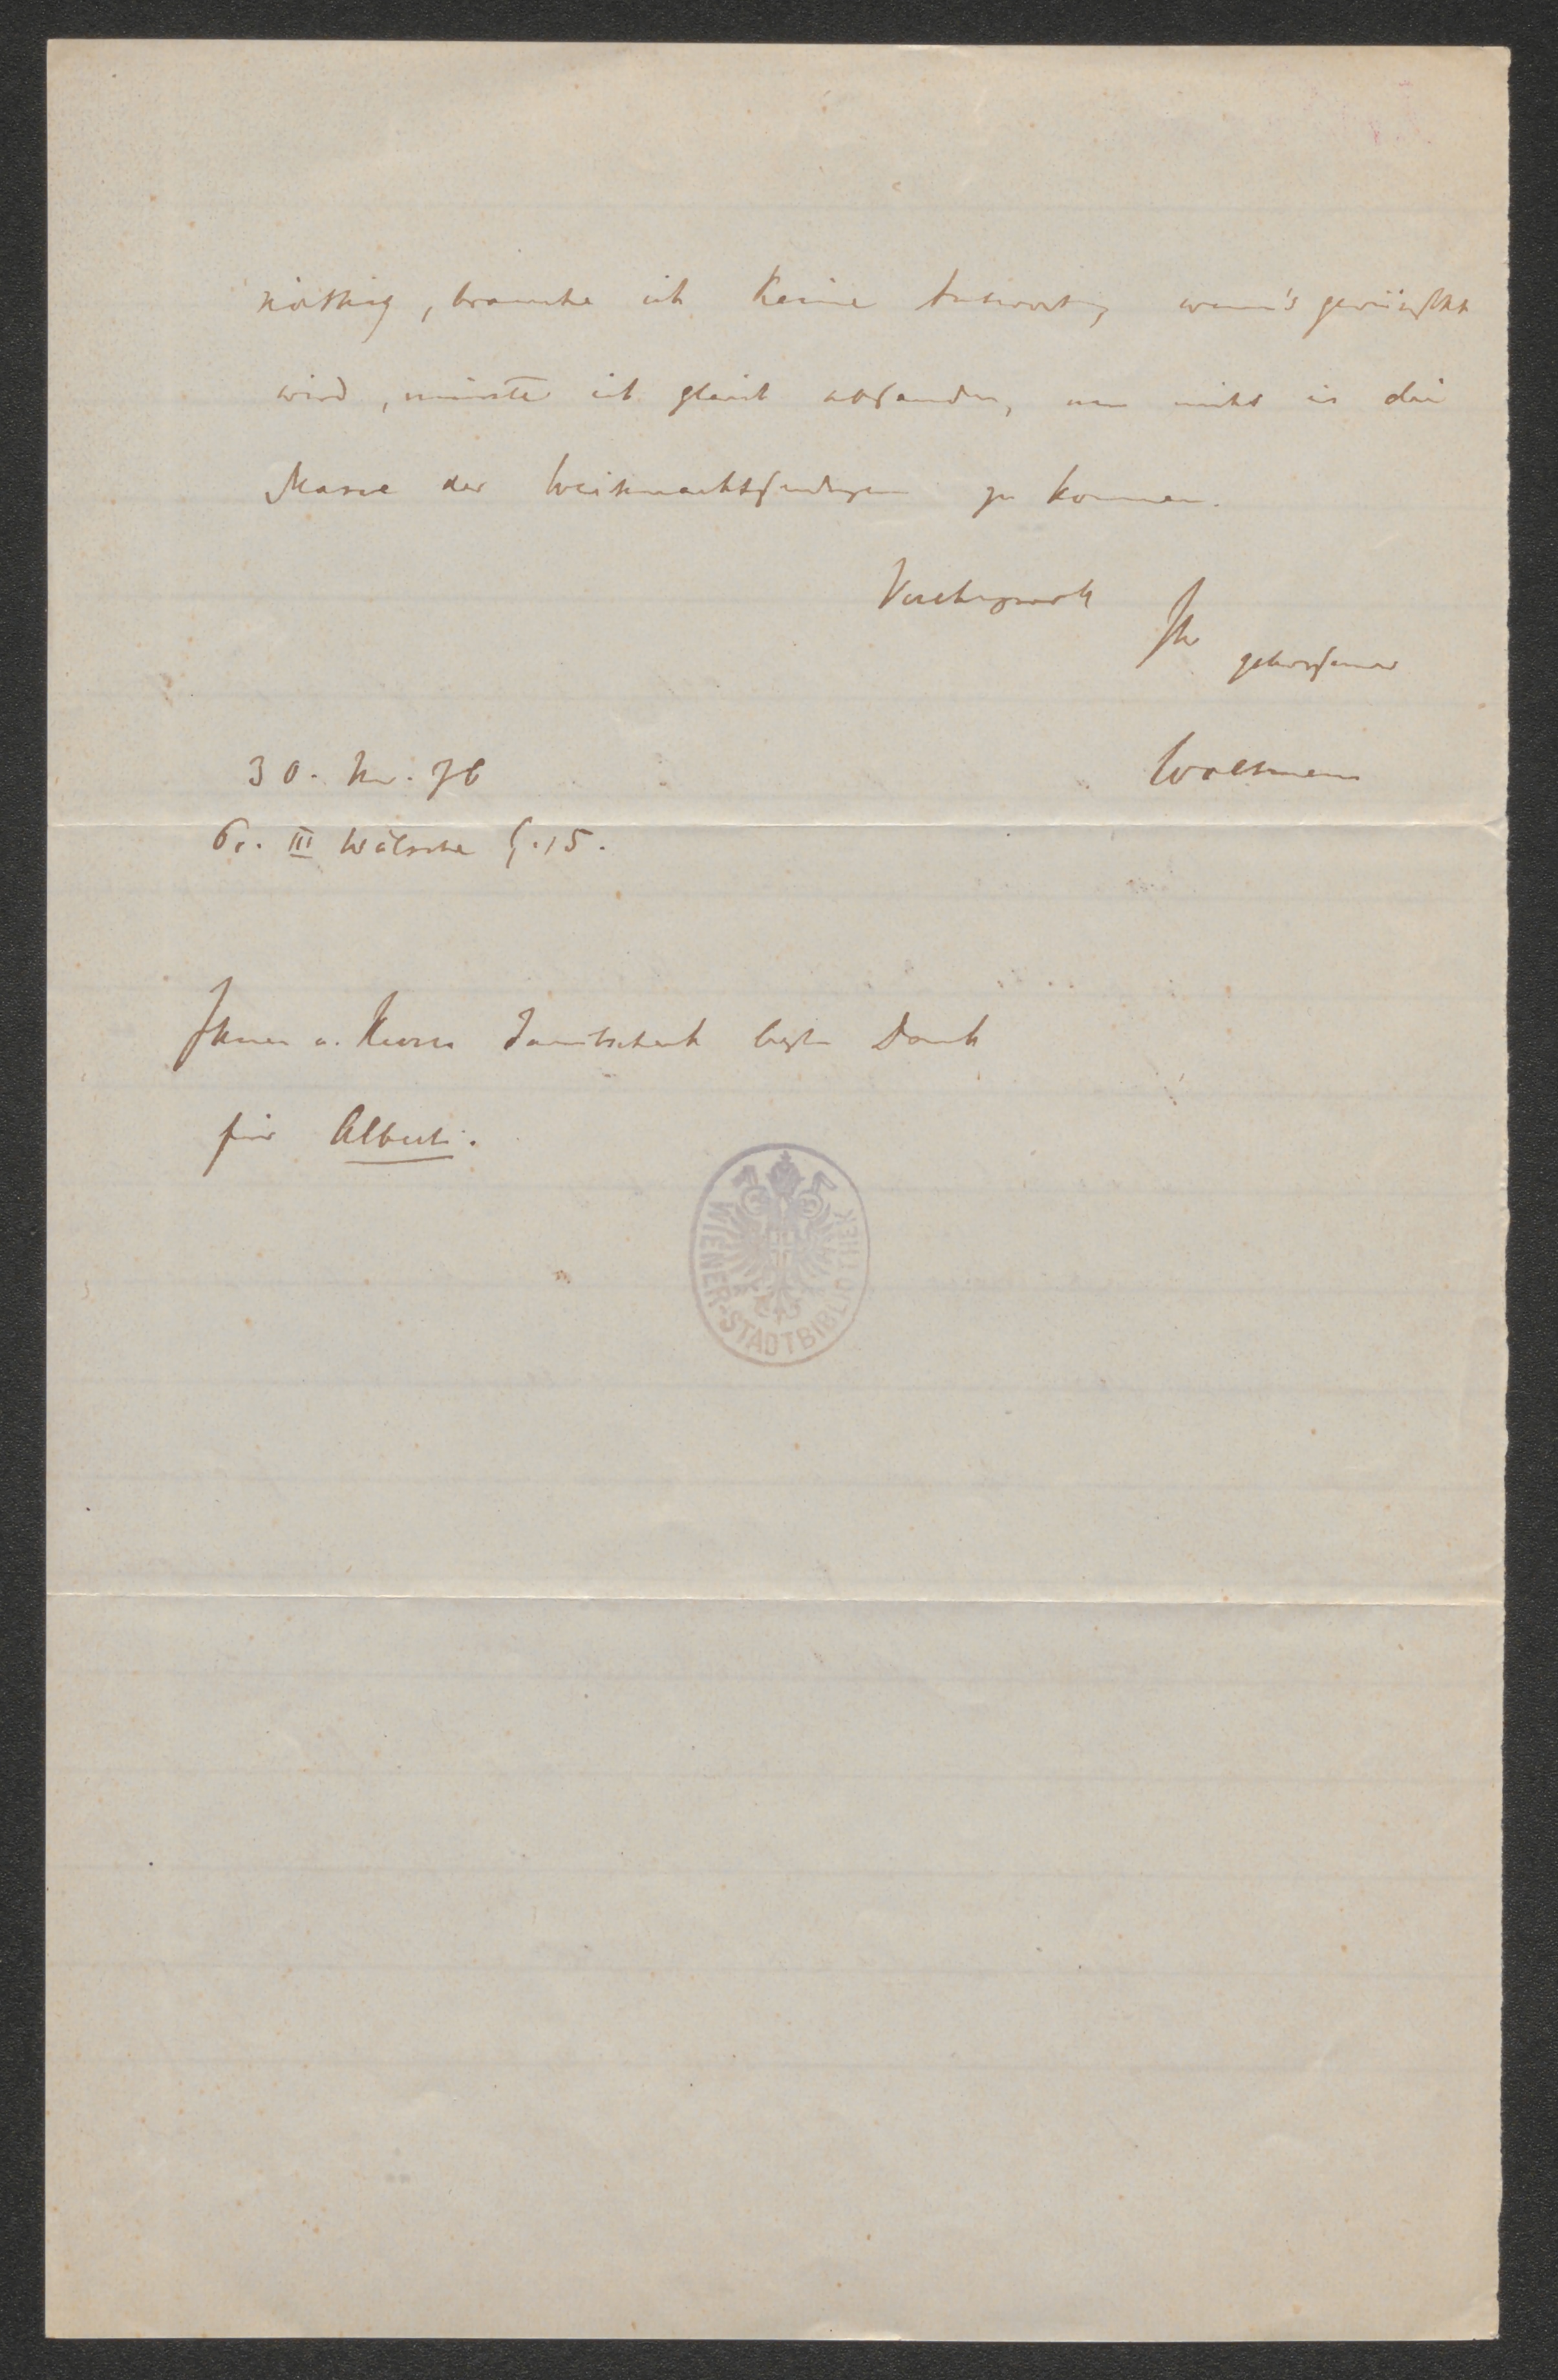 nöthig, brauche ich keine Antwort, wenn's gewünscht
wird, müsste ich gleich absenden, um nicht in die
Masse der Weihnachtssendungen zu kommen.
Verehrungsvoll
Ihr
gehorsamer
30. Nov. 76
Woltmann
Pr. III Wälsche G. 15.
Ihnen u. Herrn Janitschek besten Dank
für Alberti.
WIENER-STADTBIBLIOTHEK